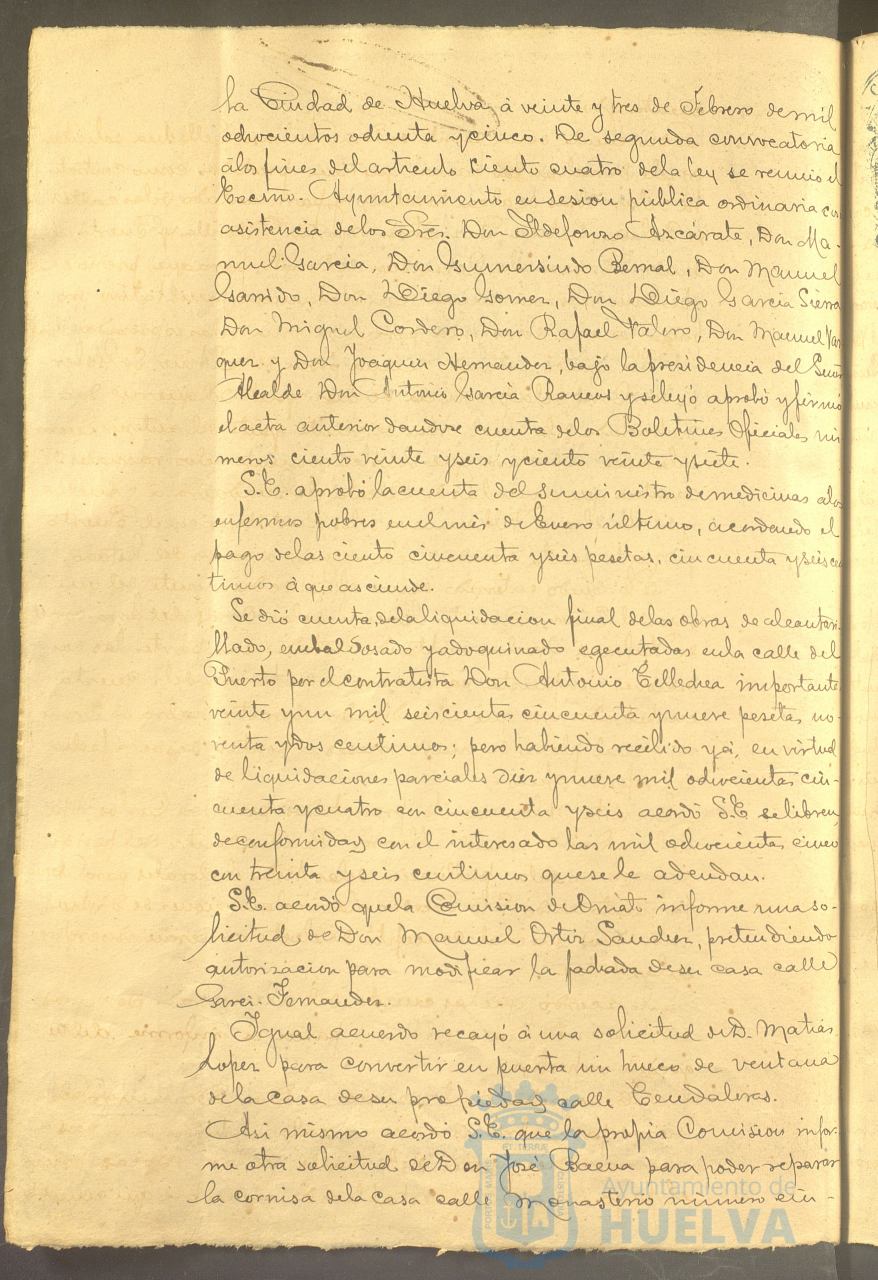 la Ciudad de Huelva, á veinte y tres de Febrero de mil
ochocientos ochenta y cinco. De segunda convocatoria
á los fines del articulo ciento cuatro de la ley se reunio el
Excmo. Ayuntamiento en sesion pública ordinaria con
asistencia de los Sres. Don Ildefonzo Azcárate, Don Ma-
nuel Garcia, Don Gumersindo Bernal, Don Manuel
Garrido, Don Diego Gomez, Don Diego Garcia Sierra
Don Miguel Cordero, Don Rafael Valero, Don Manuel Vaz
quez y Don Joaquin Hernandez, bajo la presidencia del Señor
Alcalde Don Antonio Garcia Ramos y se leyó aprobó y firmó
el acta anterior dandose cuenta de los Boletines Oficiales nú
meros ciento veinte y seis y ciento veinte y siete.
S.E. aprobó la cuenta del suministro de medicinas a los
enfermos pobres en el mes de Enero último, acordando el
pago de las ciento cincuenta y seis pesetas, cincuenta y seis cen
timos á que asciende.
Se dió cuenta de la liquidacion final de las obras de alcantari-
llado, embaldosado y adoquinado egecutadas en la calle del
Puerto por el contratista Don Antonio Tellechea importante
veinte y un mil seiscientas cincuenta y nueve pesetas no-
venta y dos centimos; pero habiendo recibido yá, en virtud
de liquidaciones parciales diez y nueve mil ochocientas cin-
cuenta y cuatro con cincuenta y seis acordó S.E. se libren,
de conformidad con el interesado las mil ochocientas cinco
con treinta y seis centimos que se le adeudan.
S.E. acordó que la Comision de Ornato informe una so-
licitud de Don Manuel Ortiz Sanchez, pretendiendo
autorizacion para modificar la fachada de su casa calle
Garci-Fernandez.
Igual acuerdo recayó á una solicitud de D. Matias
Lopez para convertir en puerta un hueco de ventana
de la casa de su propiedad calle Tendaleras.
Asi mismo acordó S.E. que la propia Comision infor-
me otra solicitud de Don José Baena para poder reparar
la cornisa de la casa calle Monasterio número cin-
Ayuntamiento de
HUELVA